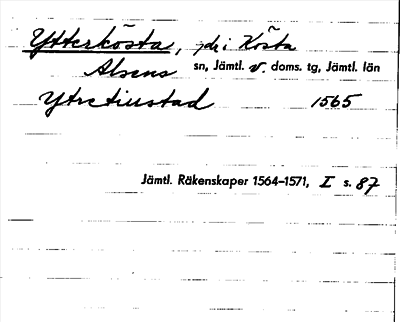 Ytterkösta, gd i Kösta
Alsens sn, Jämtl. v. doms. tg, Jämtl. län
Ytretiustad 1565
Jämtl. Räkenskaper 1564–1571, I s. 87